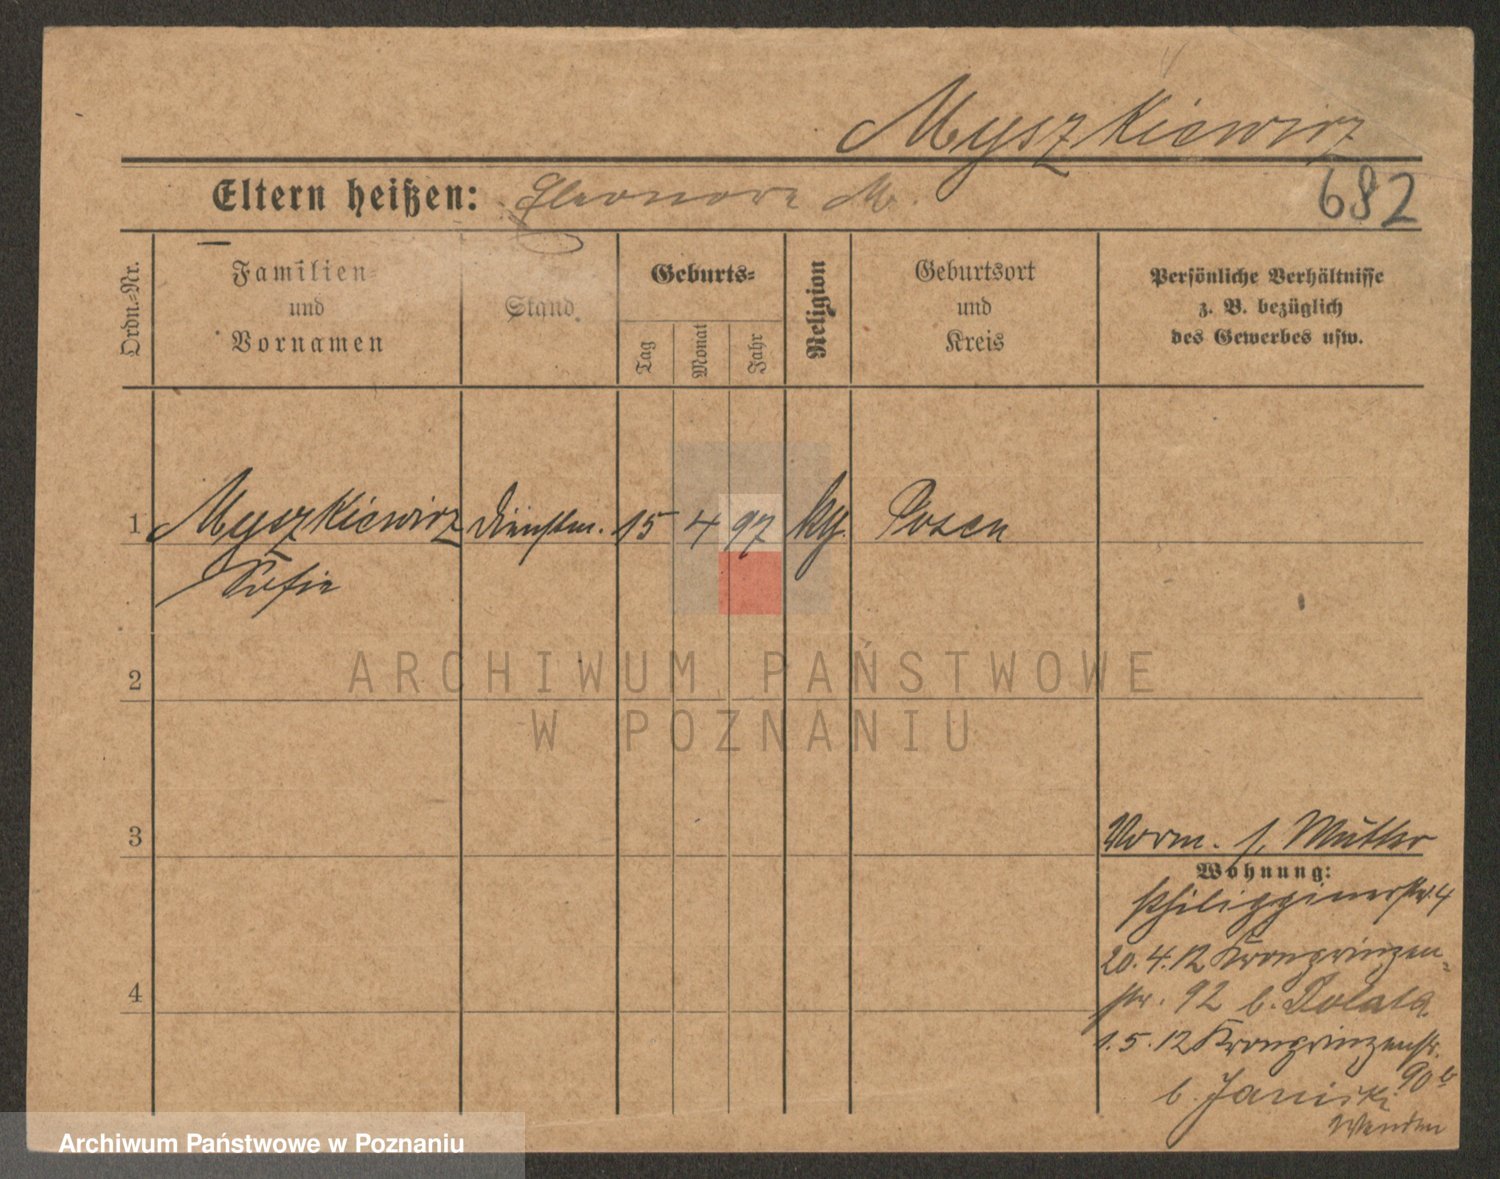 Myszkiewicz
Eltern heißen: Eleonore M.
682
Ordn.-Nr.
Familien-
und
Vornamen
Stand
Geburts-
Tag
Monat
Jahr
Religion
Geburtsort
und
Kreis
Persönliche Verhältnisse
z. B. bezüglich
des Gewerbes usw.
1 Myszkiewicz Dienstm. 15 4 97 kg. Posen
Sofie
2
3
4
Vorm. s. Mutter
Wohnung:
Philippinerstr 4
20.4.12 Kronprinzen-
str. 92 b. Rolala
1.5.12 Kronprinzenstr.
90b
b. Janiski
Wenden
ARCHIWUM PAŃSTWOWE
W POZNANIU
Archiwum Państwowe w Poznaniu